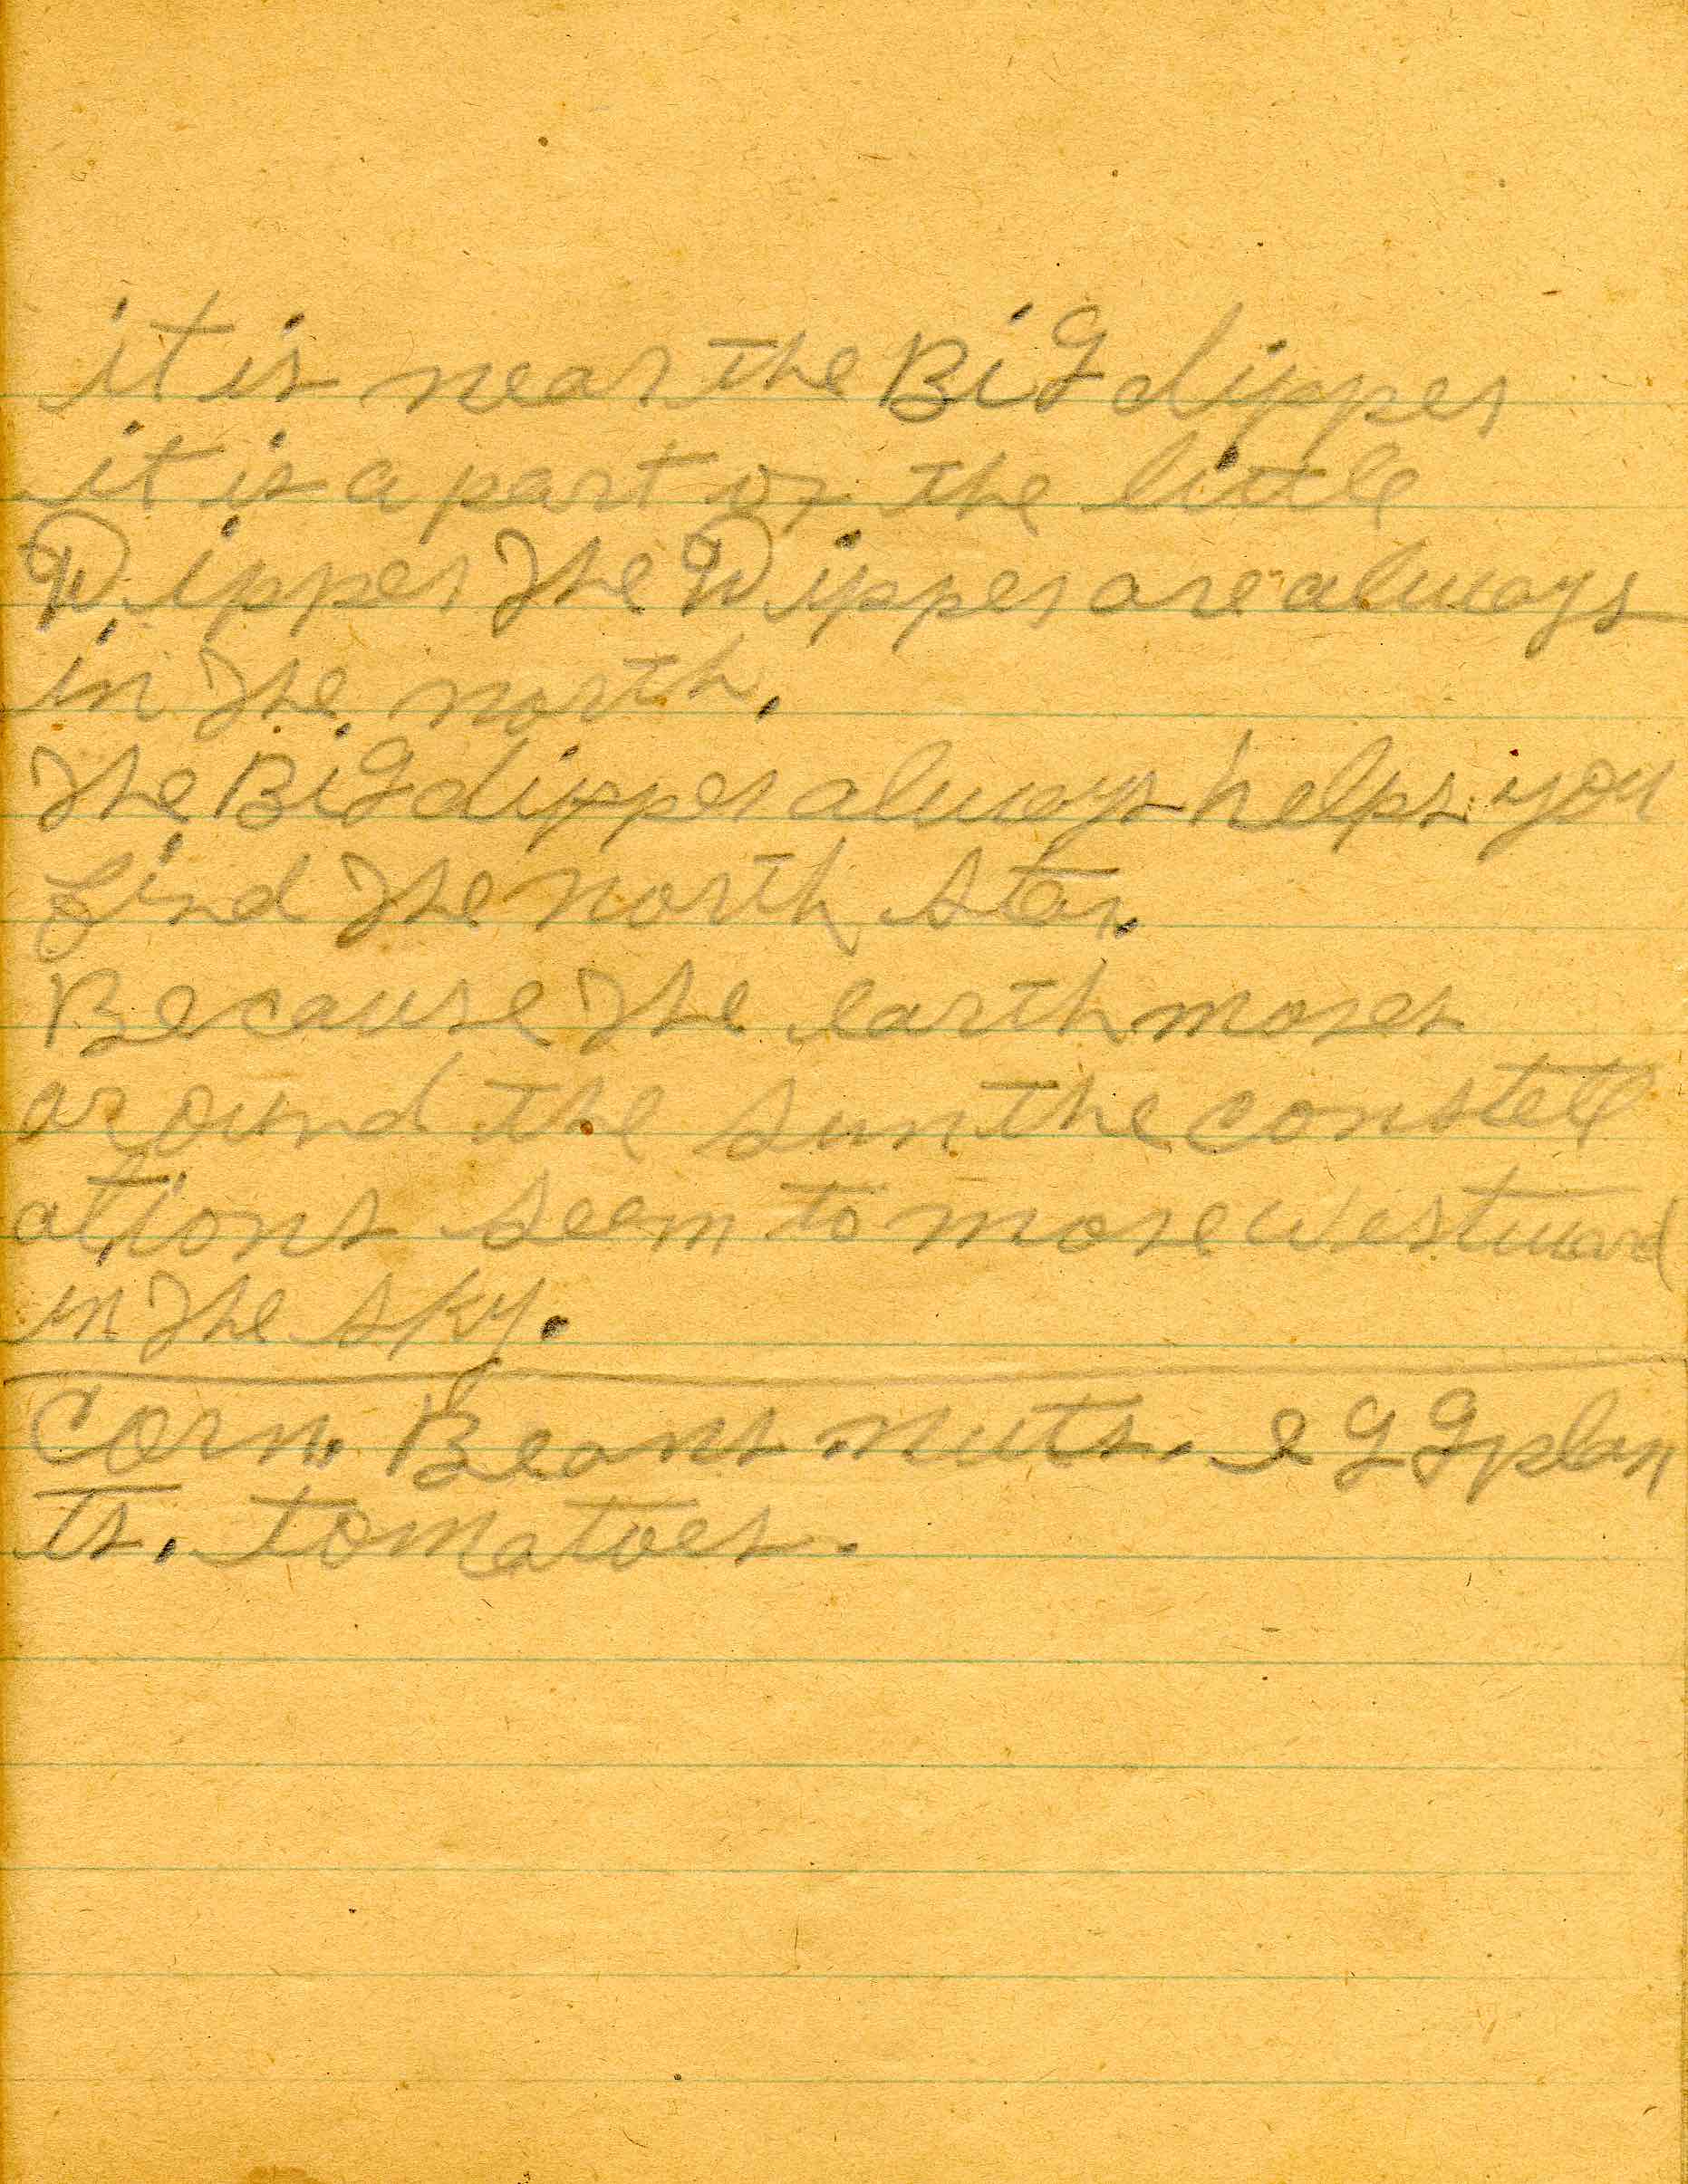 it is near the BiG dipper
it is a part of the little
Dipper The Dipper are always
in The north.
The BiG dipper always helps you
find The north star.
Because The earth moves
around the sun the constell
ations seem to move westward
in The sky.
Corn. Beans nuts. eGGplan
ts. tomatoes.